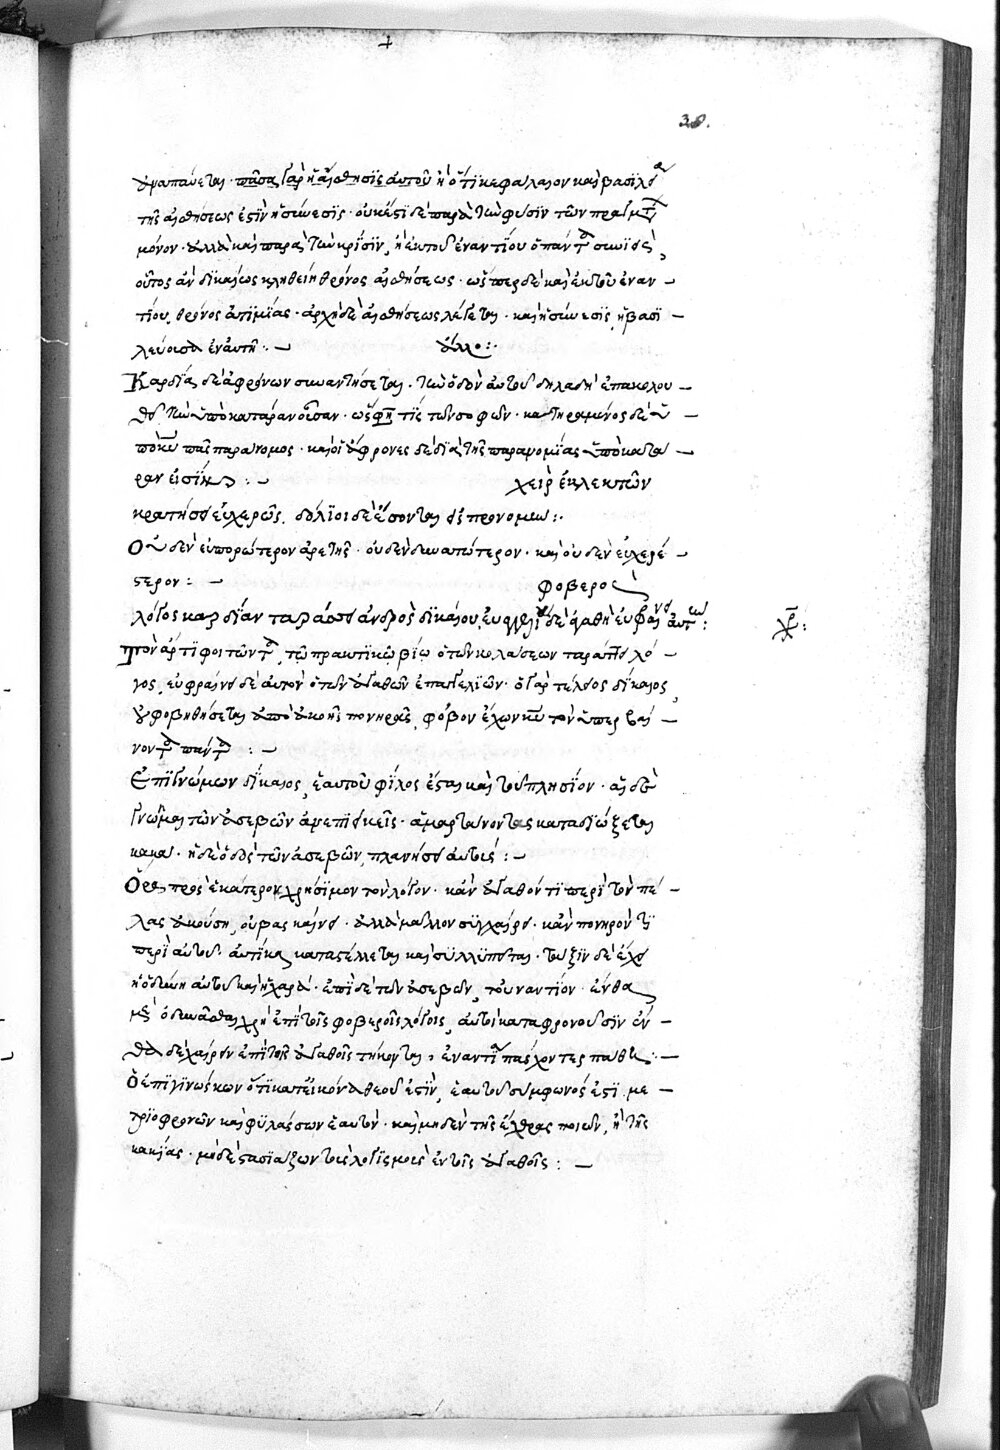 38.
ἀναπαύεται· πᾶσα γὰρ ἡ αἴσθησις αὐτοῦ ἢ ὅτι κεφάλαιον καὶ βασίλεια
τῆς αἰσθήσεως ἐστὶν ἡ σύνεσις· οὐκ ἔστι δὲ παρὰ τὴν φύσιν τῶν πραγμάτων
μόνον· ἀλλὰ καὶ παρὰ τὴν κρίσιν, ἢ ἐκ τοῦ ἐναντίου ὁ πάντα συνιδὼν,
οὗτος ἂν δικαίως κληθείη θρόνος αἰσθήσεως· ὥσπερ δὲ καὶ ἐκ τοῦ ἐναν
τίου, θρόνος ἀτιμίας· ἀρχὴ δὲ αἰσθήσεως λέγεται· καὶ ἡ σύνεσις, ἡ βασι
λεύουσα ἐν αὐτῇ: ἄλλο:
Καρδία δὲ ἀφρόνων συναντήσεται· τὴν ὁδὸν αὐτοῦ δηλαδὴ ἐπακολου
θεῖ τὴν ὑπὸ κατάραν οὖσαν· ὥς φησί τις τῶν σοφῶν· κατηραμένος δὲ ὑ
πὸ κυ πᾶς παράνομος· καὶ οἱ ἄφρονες δὲ διὰ τῆς παρανομίας ὑπὸ κατά
ραν εἰσίν: χεὶρ ἐκλεκτῶν
κρατήσει εὐχερῶς, δόλιοι δὲ ἔσονται εἰς προνομήν:
Οὐδὲν εὐπορώτερον ἀρετῆς· οὐδὲν δυνατώτερον· καὶ οὐδὲν εὐχερέ
στερον: φοβερὸς
λόγος καρδίαν ταράσσει ἀνδρὸς δικαίου, ἀγγελία δὲ ἀγαθὴ εὐφραίνει αὐτόν:
Τὸν ἄρτι φοιτῶντα, τῷ πρακτικῷ βίῳ ὁ τῶν κολάσεων ταράττει λό
γος, εὐφραίνει δὲ αὐτὸν ὁ τῶν ἀγαθῶν ἐπαγγελιῶν· ὁ γὰρ τέλειος δίκαιος,
οὐ φοβηθήσεται ἀπὸ ἀκοῆς πονηρᾶς, φόβον ἔχων κυ τὸν ὑπερβαί
νοντα πάντα:
Ἐπιγνώμων δίκαιος, ἑαυτοῦ φίλος ἔσται καὶ τοῦ πλησίον· αἱ δὲ
γνῶμαι τῶν ἀσεβῶν ἀνεπιεικεῖς· ἁμαρτάνοντας καταδιώξεται
κακά· ἡ δὲ ὁδὸς τῶν ἀσεβῶν, πλανήσει αὐτούς:
Ὅρα πρὸς ἑκάτερον χρήσιμον τὸν λόγον· κἂν ἀγαθόν τι περὶ τὸν πέ
λας ἀκούσῃ, οὐ βασκαίνει· ἀλλὰ μᾶλλον συγχαίρει· κἂν πονηρόν τι
περὶ αὐτοῦ· αὐτίκα καταστέλλεται καὶ συλλυπεῖται· τάξιν δὲ ἔχει
ἡ ὀδύνη αὐτοῦ καὶ ἡ χαρά· ἐπὶ δὲ τῶν ἀσεβῶν, τοὐναντίον· ἔνθα
μὲν ὀδυνᾶσθαι χρὴ ἐπὶ τοῖς φοβεροῖς λόγοις, αὐτοὶ καταφρονοῦσιν ἔν
θα δὲ χαίρειν ἐπὶ τοῖς ἀγαθοῖς τήκονται, ἐναντία πάσχοντες πάθη:
Ὁ ἐπιγινώσκων ὅτι κατ᾽ εἰκόνα θεοῦ ἐστὶν, ἑαυτοῦ σύμφωνός ἐστι με
τριοφρονῶν καὶ φυλάσσων ἑαυτόν· καὶ μηδὲν τῆς ἔχθρας ποιῶν, ἢ τῆς
κακίας· μηδὲ στασιάζων τοῖς λογισμοῖς ἐν τοῖς ἀγαθοῖς: